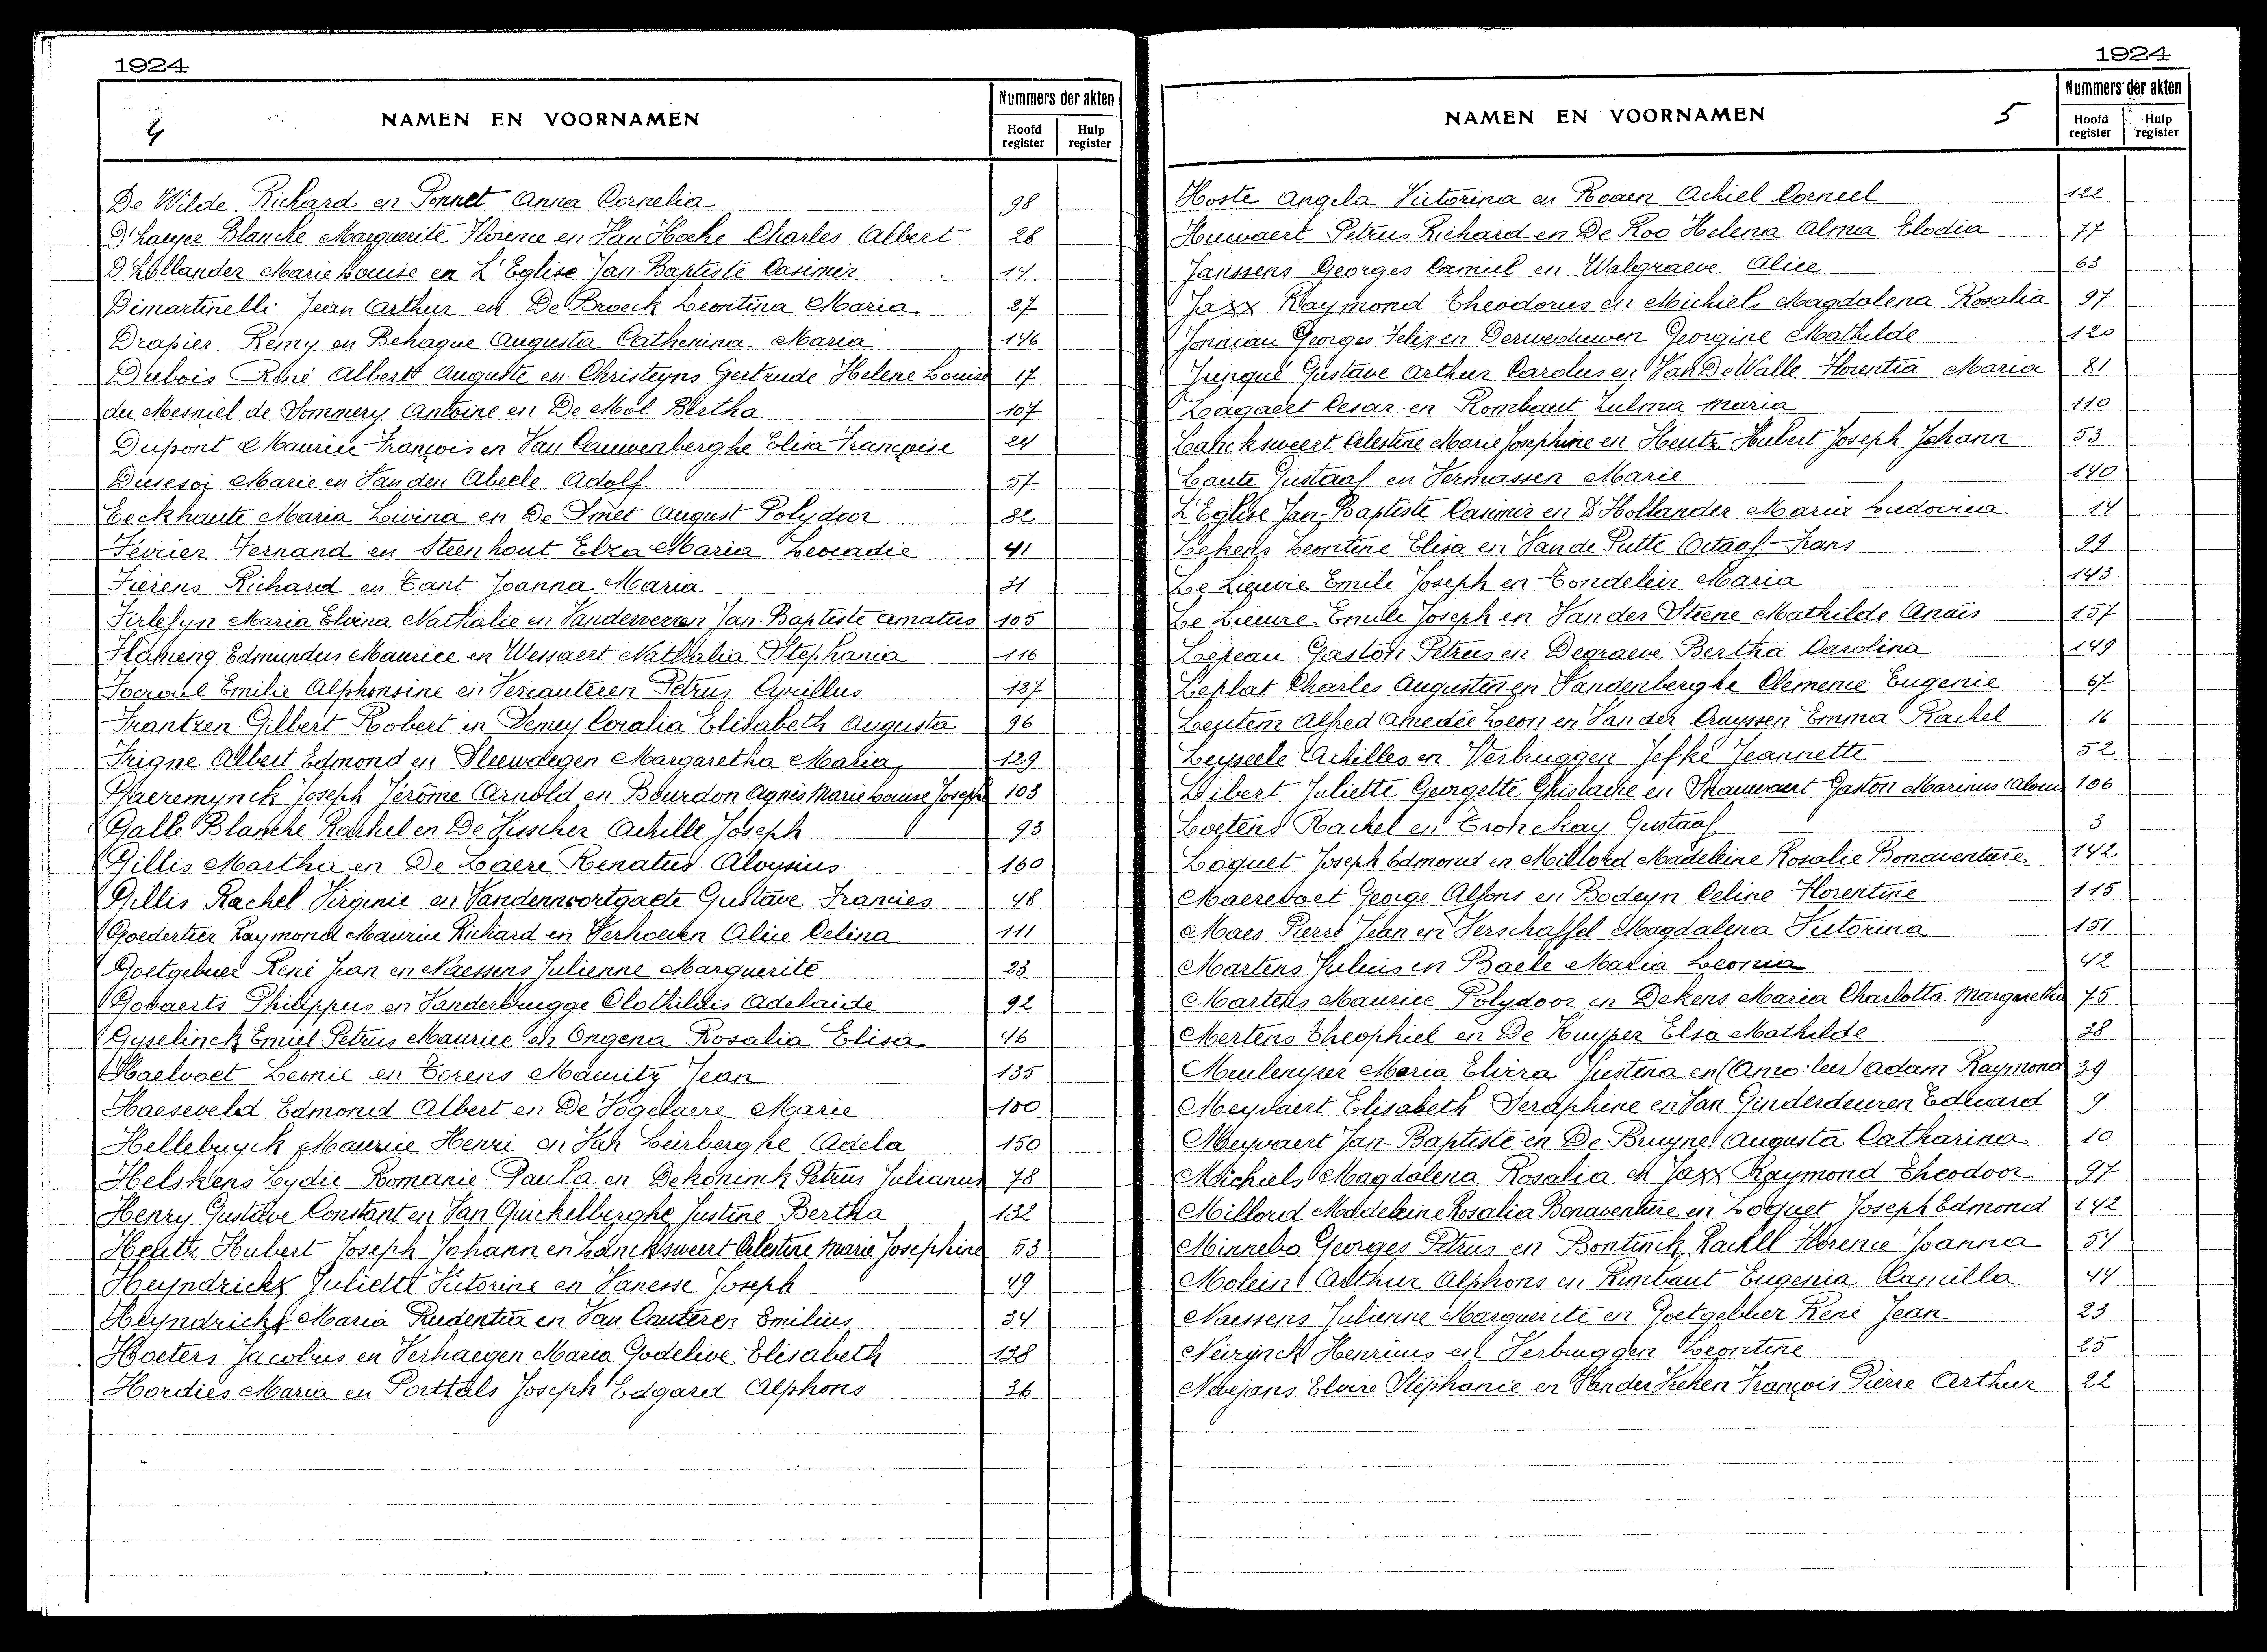 1924
4
NAMEN EN VOORNAMEN
Nummers der akten
Hoofd register
Hulp register
De Wilde Richard en Ponnet Anna Cornelia 98
D'haeyer Blancke Marguerite Florence en Van Hecke Charles Albert 28
D'hollander Marie Louise en L'Eglise Jan-Baptiste Casimir 14
Dimartinelli Jean Arthur en De Broeck Leontina Maria 27
Drapier Remy en Behaque Augusta Catherina Maria 146
Dubois René Albert Auguste en Christeyns Gertrude Helene Louise 17
du Mesniel de Sommery Antoine en De Mol Bertha 107
Dupont Maurice François en Van Cauwenberghe Elisa Françoise 24
Dusesoi Marie en Van den Abeele Adolf 57
Eeckhaute Maria Livina en De Smet August Polydoor 82
Février Fernand en Steenhout Elza Maria Leocadie 41
Fierens Richard en Tant Joanna Maria 31
Firlefyn Maria Elvina Nathalie en Vanderverren Jan-Baptiste Amatus 105
Flahieng Edmundus Maurice en Wessaert Nathalia Stephania 116
Emilie Alphonsine en Vercauteren Petrus Cyrillus 137
Frantzen Gilbert Robert en Demey Coralia Elisabeth Augusta 96
Frigne Albert Edmond en Sleewaegen Margaretha Maria 129
Gaeremynck Joseph Jérôme Arnold en Bourdon Agnès Marie Louise Joseph 103
Galle Blanche Rachel en De Visscher Achille Joseph 93
Gillis Martha en De Laere Renatus Aloysius 160
Gillis Rachel Virginie en Vandennoortgaete Gustave Francies 48
Goedertier Raymond Maurice Richard en Verhoeven Alice Celina 111
Goetgebuer René Jean en Naessens Julienne Marguerite 23
Govaerts Philippus en Vanderbrugge Clothildis Adelaide 92
Gyselinck Emiel Petrus Maurice en Ongena Rosalia Elisa 46
Haelvoet Leonie en Torens Mauritz Jean 135
Haeseveld Edmond Albert en De Vogelaere Marie 100
Hellebuyck Maurice Henri en Van Leirberghe Adela 150
Helskens Lydie Romanie Paula en Dekoninck Petrus Julianus 78
Henry Gustave Constant en Van Quickelberghe Justine Bertha 132
Heutz Hubert Joseph Johann en Lancksweert Celestine Marie Josephine 53
Heyndrickx Juliette Victorine en Vanesse Joseph 49
Heyndrickx Maria Prudentia en Van Cauteren Emilius 34
Hoeters Jacobus en Verhaegen Maria Godelive Elisabeth 138
Hordies Maria en Porttals Joseph Edgard Alphons 36
1924
NAMEN EN VOORNAMEN
5
Nummers der akten
Hoofd register
Hulp register
Hoste Angela Victorina en Rogen Achiel Corneel 122
Huwaert Petrus Richard en De Roo Helena Alma Elodia 77
Janssens Georges Camiel en Walgraeve Alice 63
Jaxx Raymond Theodorus en Michiels Magdalena Rosalia 97
Jonniau Georges Felix en Derweduwen Georgine Mathilde 120
Gustave Arthur Carolus en Van De Walle Florentia Maria 81
Lagaert Cesar en Rombaut Zulma Maria 110
Lancksweert Celestine Marie Josephine en Heutz Hubert Joseph Johann 53
Laute Gustaaf en Vermassen Marie 140
L'Eglise Jan-Baptiste Casimir en D'Hollander Maria Ludovica 14
Lekens Leontine Elisa en Van de Putte Octaaf Frans 99
Le Lièvre Emile Joseph en Tondeleir Maria 143
Le Lièvre Emile Joseph en Van der Steene Mathilde Anaïs 157
Lepeau Gaston Petrus en Degraeve Bertha Carolina 149
Leplat Charles Augustin en Vandenberghe Clemence Eugenie 67
Alfred Amedée Leon en Van der Cruyssen Emma Rachel 16
Leyseele Achilles en Verbruggen Jefke Jeannette 52
Libert Juliette Georgette Ghislaine en Gaston Marinus 106
Loetens Rachel en Gustaaf 3
Loquet Joseph Edmond en Millord Madeleine Rosalie Bonaventure 142
Maerevoet George Alfons en Bodeyn Celine Florentine 115
Maes Pierre Jean en Verschaffel Magdalena Victorina 151
Martens Julius en Baele Maria Leonia 42
Martens Maurice Polydoor en Dekens Maria Charlotta Margaretha 75
Mertens Theophiel en De Kuyper Elsa Mathilde 38
Meulenyzer Maria Elvira Justina en Adam Raymond 39
Meyvaert Elisabeth Seraphine en Van Ginderdeuren Eduard 9
Meyvaert Jan-Baptiste en De Bruyne Augusta Catharina 10
Michiels Magdalena Rosalia en Jaxx Raymond Theodoor 97
Millord Madeleine Rosalia Bonaventure en Loquet Joseph Edmond 142
Minnebo Georges Petrus en Bontinck Rachel Florence Joanna 54
Molein Arthur Alphons en Rimbaut Eugenia Camilla 44
Naessens Julienne Marguerite en Goetgebuer René Jean 23
Neirynck Henricus en Verbruggen Leontine 25
Elvire Stephanie en Van der Veken François Pierre Arthur 22